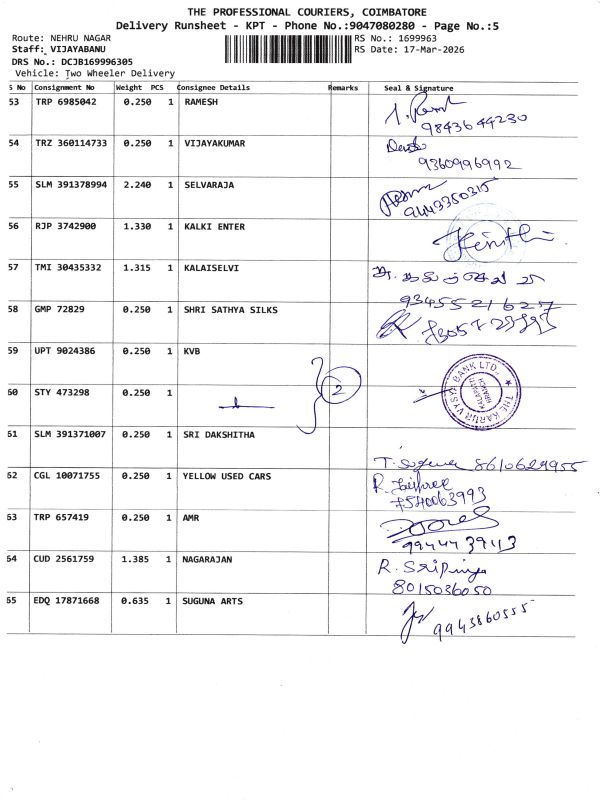 THE PROFESSIONAL COURIERS, COIMBATORE
Delivery Runsheet - KPT - Phone No.:9047080280 - Page No.:5
Route: NEHRU NAGAR RS No.: 1699963
Staff: VIJAYABANU RS Date: 17-Mar-2026
DRS No.: DCJB169996305
Vehicle: Two Wheeler Delivery
S No Consignment No Weight PCS Consignee Details Remarks Seal & Signature
53 TRP 6985042 0.250 1 RAMESH
9843644230
54 TRZ 360114733 0.250 1 VIJAYAKUMAR
9360996992
55 SLM 391378994 2.240 1 SELVARAJA
9443350315
56 RJP 3742900 1.330 1 KALKI ENTER
57 TMI 30435332 1.315 1 KALAISELVI
9345521627
58 GMP 72829 0.250 1 SHRI SATHYA SILKS
59 UPT 9024386 0.250 1 KVB
2
THE KARUR VYSYA BANK LTD.,
KALAPATTI
BRANCH
60 STY 473298 0.250 1
61 SLM 391371007 0.250 1 SRI DAKSHITHA
T. Suguna 8610629955
62 CGL 10071755 0.250 1 YELLOW USED CARS
7540063993
63 TRP 657419 0.250 1 AMR
9944439443
64 CUD 2561759 1.385 1 NAGARAJAN
R. Sripriya
8015036050
65 EDQ 17871668 0.635 1 SUGUNA ARTS
9943860555